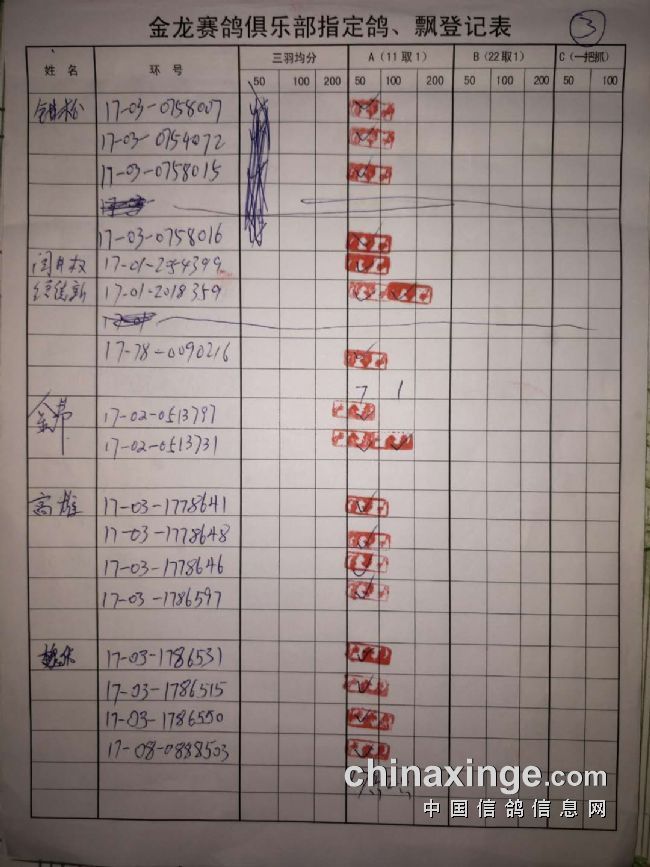 金龙赛鸽俱乐部指定鸽、飘登记表 3
姓 名 环 号 三羽均分 A（11 取 1） B（22 取 1） C（一把抓）
50 100 200 50 100 200 50 100 200 50 100
17-03-0758007
17-03-0754072
17-03-0758015
17-03-0758016
17-01-2354399
17-01-2018359
17-78-0090216
7 1
17-02-0513797
17-02-0513731
高雄 17-03-1778641
17-03-1778648
17-03-1778646
17-03-1786597
17-03-1786531
17-03-1786515
17-03-1786550
17-08-0888503
chinaxinge.com
中国信鸽信息网